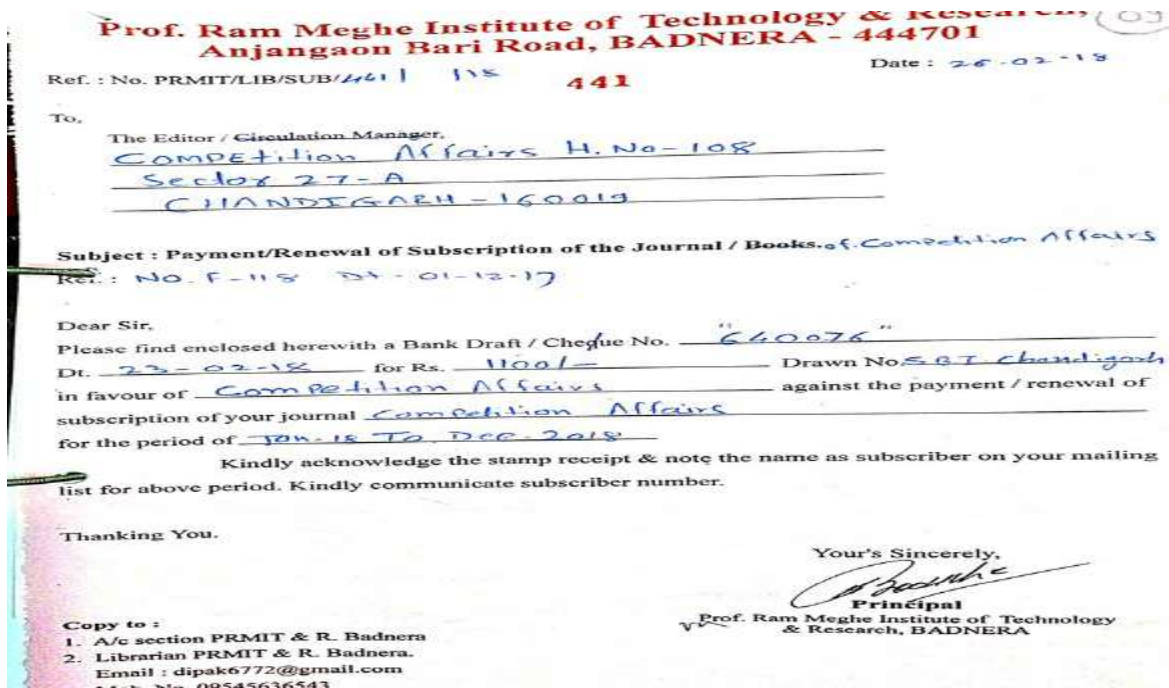 Prof. Ram Meghe Institute of Technology & Research,
Anjangaon Bari Road, BADNERA - 444701
Ref. : No. PRMIT/LIB/SUB/441 / 118 441 Date : 26-02-18
To,
The Editor / Circulation Manager,
Competition Affairs H.No-108
Sector 27-A
CHANDIGARH - 160019
Subject : Payment/Renewal of Subscription of the Journal / Books. of Competition Affairs
Ref. : No. F-118 Dt - 01-12-17
Dear Sir,
Please find enclosed herewith a Bank Draft / Cheque No. "640076"
Dt. 23-02-18 for Rs. 1100/- Drawn No. SBI Chandigarh
in favour of Competition Affairs against the payment / renewal of
subscription of your journal Competition Affairs
for the period of Jan-18 To Dec-2018
Kindly acknowledge the stamp receipt & note the name as subscriber on your mailing
list for above period. Kindly communicate subscriber number.
Thanking You.
Your's Sincerely,
Principal
Prof. Ram Meghe Institute of Technology
& Research, BADNERA
Copy to :
1. A/c section PRMIT & R. Badnera
2. Librarian PRMIT & R. Badnera.
Email : dipak6772@gmail.com
Mob. No. 09545636543